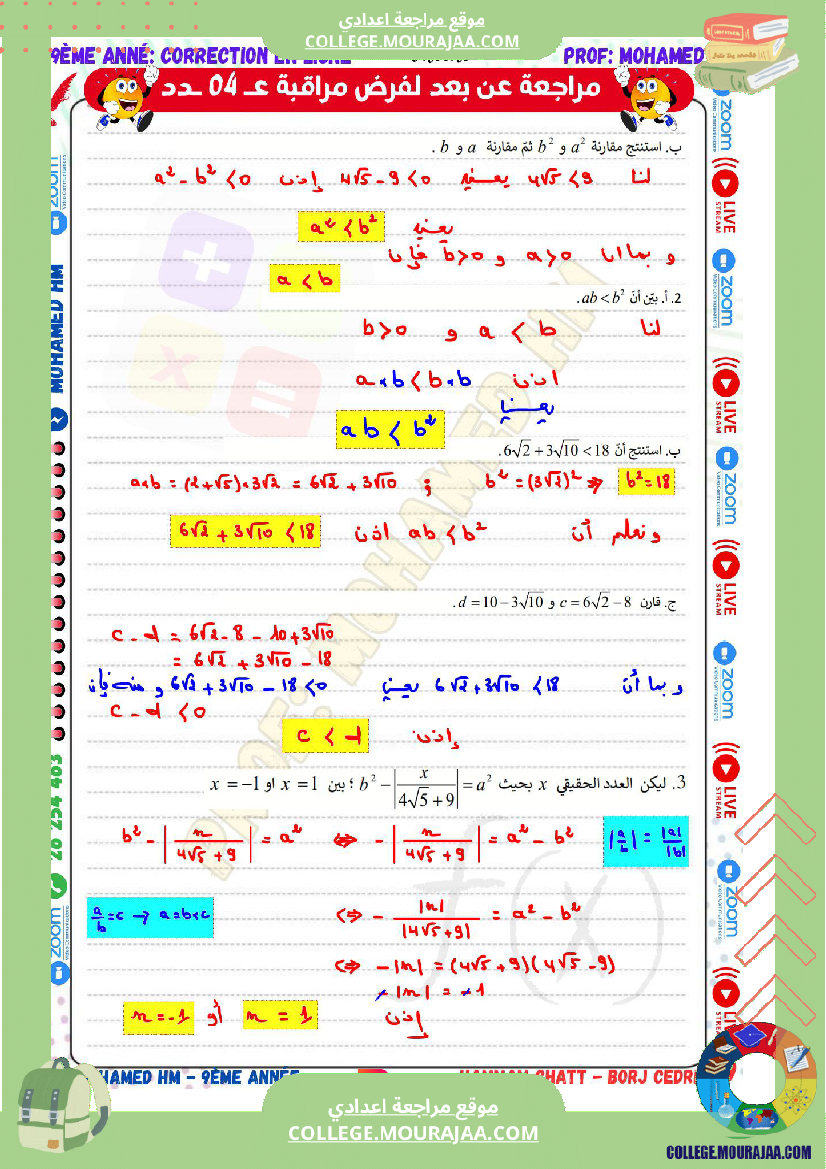 موقع مراجعة اعدادي
COLLEGE.MOURAJAA.COM
9ÈME ANNÉ: CORRECTION EN LIGNE
PROF: MOHAMED
مراجعة عن بعد لفرض مراقبة عـ 04 ـدد
ب. استنتج مقارنة a² و b² ثمّ مقارنة a و b .
لنا 4√5 < 9 يعني 4√5 - 9 < 0 إذن a² - b² < 0
يعني a² < b²
و بما أن a > 0 و b > 0 فإن
a < b
2. أ. بيّن أنّ ab < b².
لنا a < b و b > 0
اذن a × b < b × b
يعني
ab < b²
ب. استنتج أنّ 6√2 + 3√10 < 18.
a×b = (2+√5)×3√2 = 6√2 + 3√10 ; b² = (3√2)² ⇒ b² = 18
ونعلم أن ab < b² اذن 6√2 + 3√10 < 18
ج. قارن c = 6√2 − 8 و d = 10 − 3√10.
c - d = 6√2 - 8 - 10 + 3√10
= 6√2 + 3√10 - 18
و بما أن 6√2 + 3√10 < 18 يعني 6√2 + 3√10 - 18 < 0 و منه فإن
c - d < 0
إذن c < d
3. ليكن العدد الحقيقي x بحيث b² − |x/(4√5+9)| = a² ؛ بين x = 1 او x = −1
b² - |x/(4√5+9)| = a² ⇔ - |x/(4√5+9)| = a² - b²
|a/b| = |a|/|b|
⇔ - |x|/|4√5+9| = a² - b²
a/b = c → a = b×c
⇔ - |x| = (4√5+9)(4√5-9)
- |x| = - 1
إذن x = 1 أو x = -1
zoom
Video Communications
LIVE
STREAM
MOHAMED HM
28 254 483
PROF: MOHAMED HM
MOHAMED HM - 9ÈME ANNÉE
HAMMAM CHATT - BORJ CEDRIA
موقع مراجعة اعدادي
COLLEGE.MOURAJAA.COM
COLLEGE.MOURAJAA.COM